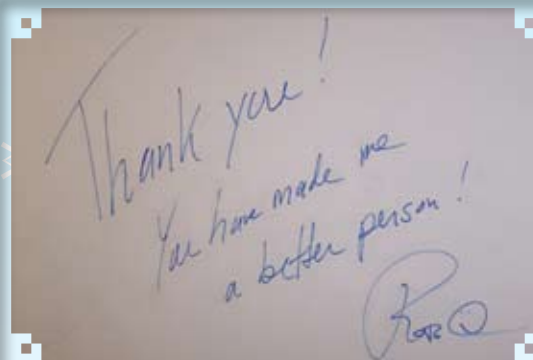 Thank you!
You have made me
a better person!